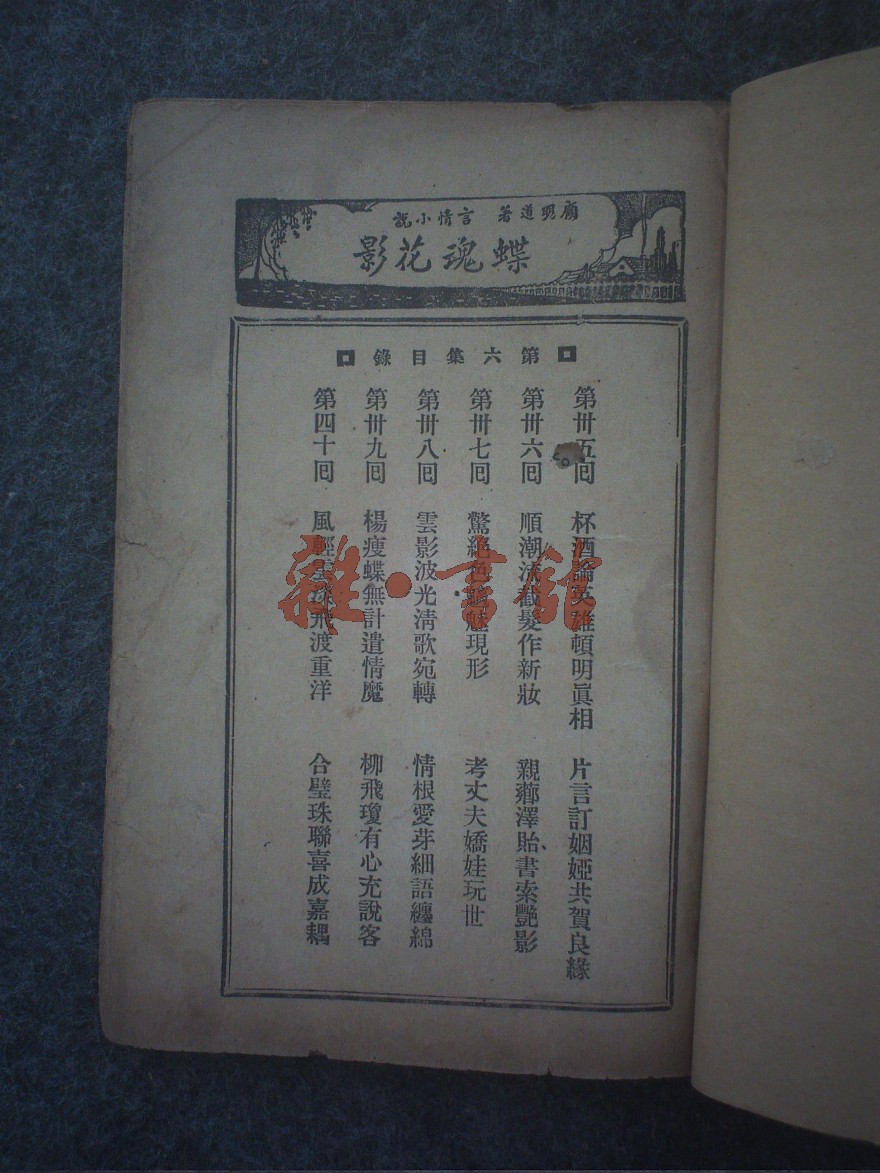 顧明道著 言情小說
蝶魂花影
第六集目錄
第卅五囘 杯酒論英雄頓明眞相 片言訂姻婭共賀良緣
第卅六囘 順潮流截髮作新妝 親薌澤貽書索艷影
第卅七囘 驚絕色魑魅現形 考丈夫嬌娃玩世
第卅八囘 雲影波光淸歌宛轉 情根愛芽細語纏綿
第卅九囘 楊瘦蝶無計遣情魔 柳飛瓊有心充說客
第四十囘 風輕雲深飛渡重洋 合璧珠聯喜成嘉耦
雜·書館